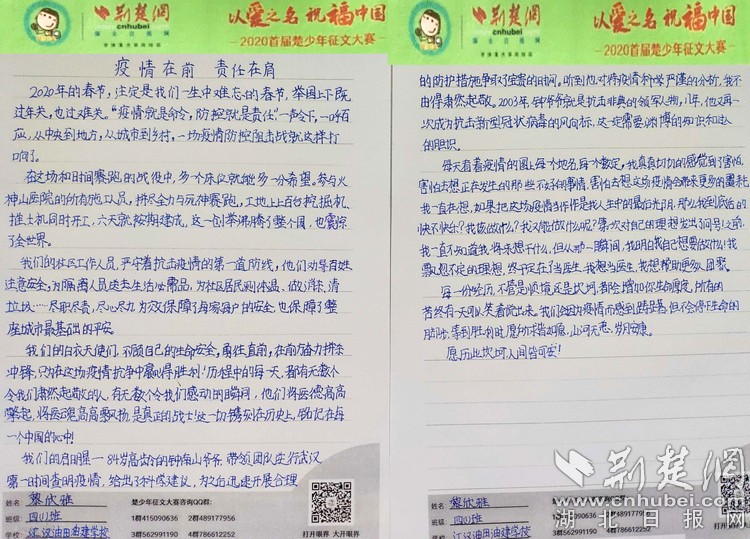 荆楚网
cnhubei
湖北日报网
以爱之名 祝福中国
2020首届楚少年征文大赛
疫情在前 责任在肩
2020年的春节,注定是我们一生中难忘的春节,举国上下既
过年关,也过难关。“疫情就是命令,防控就是责任”一声令下,一呼百
应,从中央到地方,从城市到乡村,一场疫情防控阻击战就这样打
响了。
在这场和时间赛跑的战役中,多一个床位就能多一分希望。参与火
神山医院的所有施工人员,拼尽全力与死神赛跑,工地上上百台挖掘机、
推土机同时开工,六天就按期建成,这一创举沸腾了整个国,也震惊
了全世界。
我们的社区工作人员,严守着抗击疫情的第一道防线,他们劝导百姓
注意安全,为隔离人员送去生活必需品,为社区居民测体温、做消杀、清
垃圾……尽职尽责,尽心尽力,为的保障了每家每户的安全,也保障了整
座城市最基础的平安。
我们的白衣天使们,不顾自己的生命安全,勇往直前,在前方奋力拼杀
冲锋,只为在这场疫情抗争中赢得胜利!历程中的每一天,都有无数个
令我们肃然起敬的人,有无数个令我们感动的瞬间,他们将医德高高
擎起,将医魂高高飘扬,是真正的战士!这一切镌刻在历史上,铭记在每
一个中国的心中!
我们的启明星—84岁高龄的钟南山爷爷,带领团队逆行武汉,
第一时间查明疫情,给出了科学建议,为之后迅速开展合理
姓名: 黎欣雅
班级: 四(1)班
学校: 江汉油田油建学校
楚少年征文大赛咨询QQ群:
1群415090636 2群489177956
3群562991190 4群786612252
打开眼界 大开眼界
荆楚网
cnhubei
湖北日报网
以爱之名 祝福中国
2020首届楚少年征文大赛
的防护措施争取了宝贵的时间。听到他对待疫情科学严谨的分析,我不
由得肃然起敬。2003年,钟爷爷就是抗击非典的领军人物,17年,他又再一
次成为抗击新型冠状病毒的风向标,这一定需要渊博的知识和过人
的胆识。
每天看着疫情的图上每个地名,每个数字,我真真切切的感觉到了害怕。
害怕去想正在发生的那些不好的事情,害怕去想这场疫情会带来更多的噩耗。
我一直在想,如果把这场疫情当作作是我人生中的最后光阴,那么我到底活的
快不快乐?我该做什么?我又能做什么呢?第一次对自己的理想发出了问号!之前,
我一直不知道我将来想干什么,但从那一瞬间,我明白我自己想要做什么!我
飘忽不定的理想,终于定在了当医生,我想当医生,我想帮助更多人团聚。
每一份经历,不管是顺境还是坎坷,都会增加你生命厚度,所有的
苦终有一天可以笑着说出来。我们会因为疫情而感到踌躇,但不会停下生命的
脚步,等到胜利时,愿所求皆如愿,山河无恙,岁月安康。
愿历此坎坷,人间皆可安!
姓名: 黎欣雅
班级: 四(1)班
学校: 江汉油田油建学校
楚少年征文大赛咨询QQ群:
1群415090636 2群489177956
3群562991190 4群786612252
打开眼界 大开眼界
荆楚网
www.cnhubei.com
湖北日报网